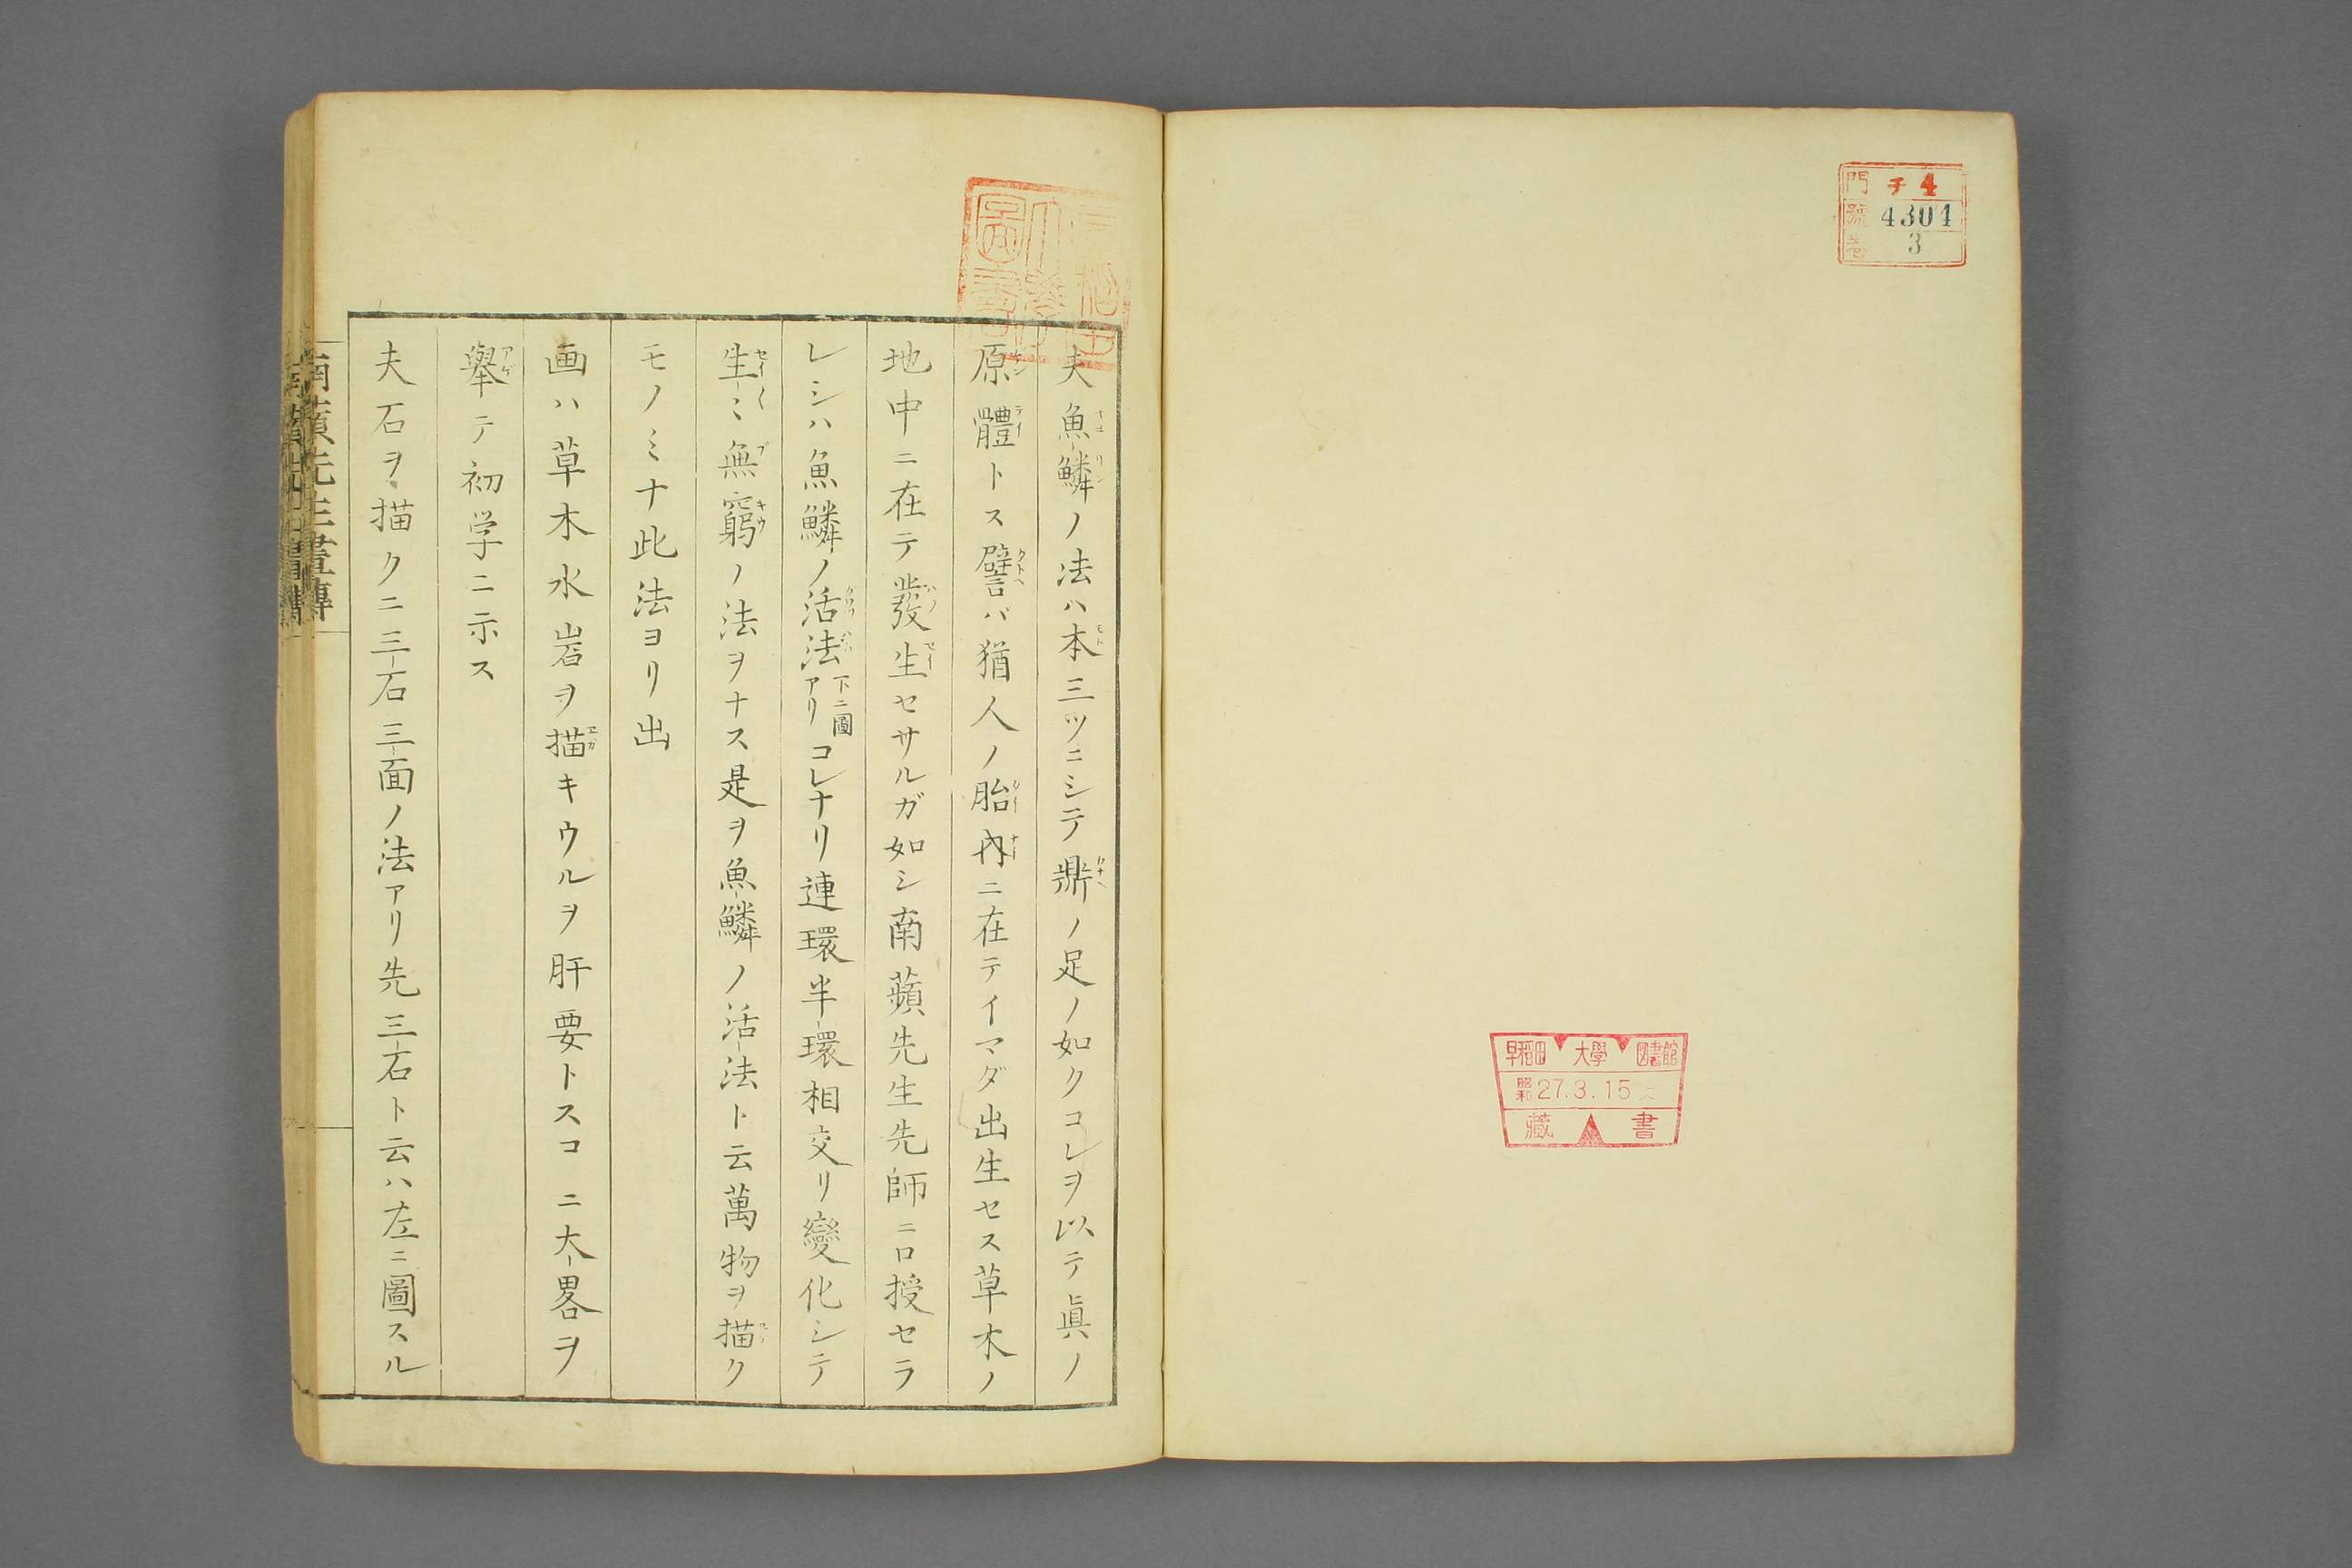 門 チ4
號 4304
巻 3
早稲田大學圖書館
昭和27.3.15
藏書
夫魚鱗ノ法ハ本三ツニシテ鼎ノ足ノ如クコレヲ以テ眞ノ
原體トス譬バ猶人ノ胎内ニ在テイマダ出生セス草木ノ
地中ニ在テ發生セサルガ如シ南蘋先生先師ニ口授セラ
レシハ魚鱗ノ活法下ニ圖アリコレナリ連環半環相交リ變化シテ
生〻無窮ノ法ヲナス是ヲ魚鱗ノ活法ト云萬物ヲ描ク
モノミナ此法ヨリ出
画ハ草木水岩ヲ描キウルヲ肝要トスコヽニ大畧ヲ
舉テ初学ニ示ス
夫石ヲ描クニ三石三面ノ法アリ先三石ト云ハ左ニ圖スル
南蘋先生畫傳